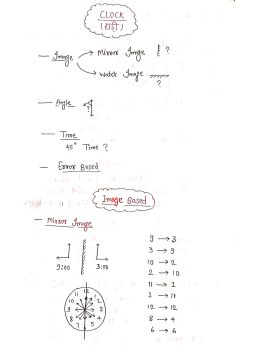 CLOCK
(घड़ी)
— Image → Mirror Image ?
→ Water Image
?
— Angle ?
— Time
45° Time ?
— Error Based
Image Based
— Mirror Image
9:00 3:00
9 → 3
3 → 9
10 → 2
2 → 10
11 → 1
1 → 11
12 → 12
8 → 4
6 → 6
12
11 1
10 2
9 3
8 4
7 5
6